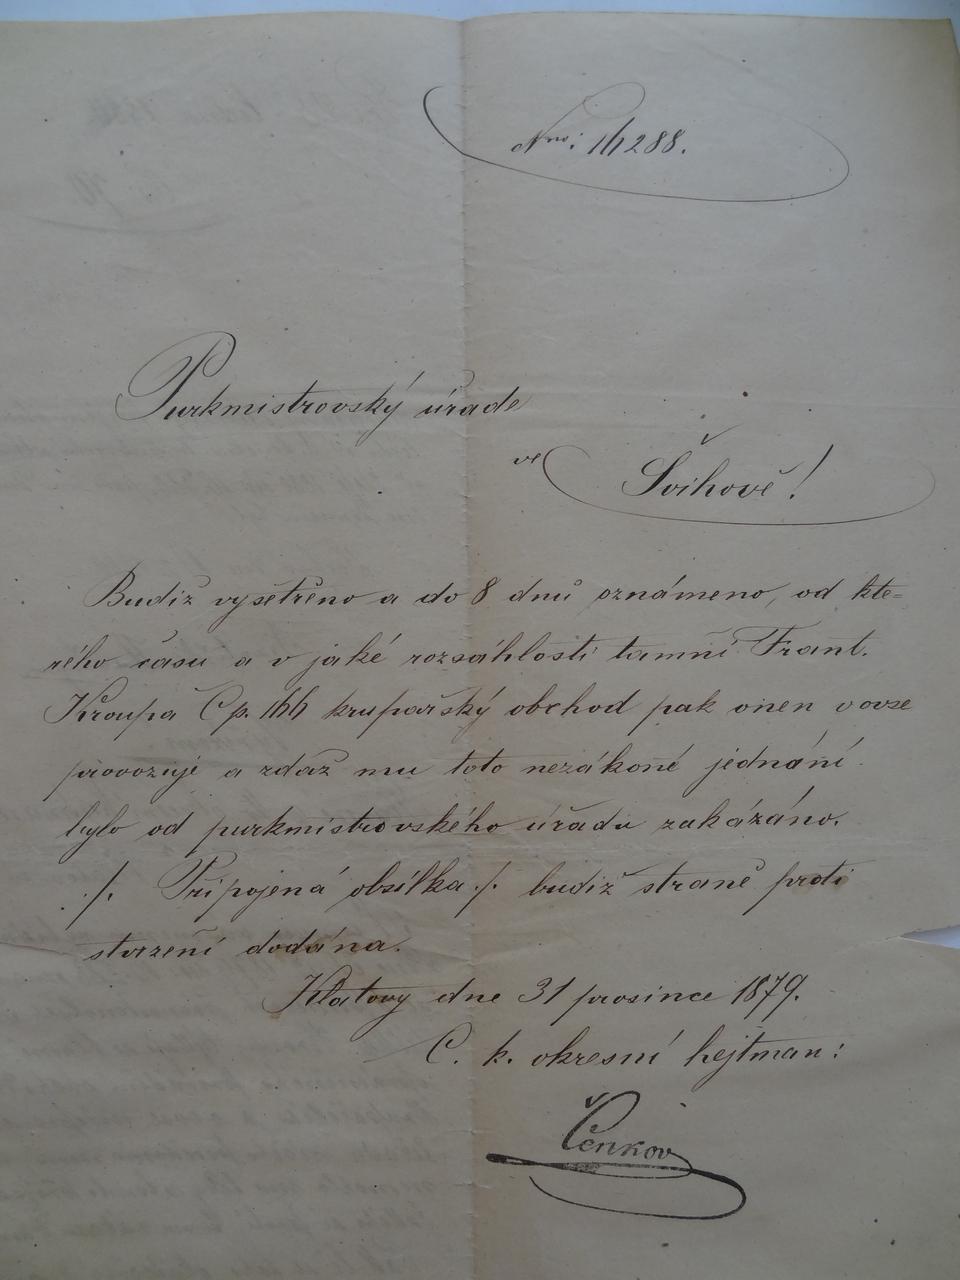 Nro: 14288.
Purkmistrovský úřade
ve Švihově!
Budiž vyšetřeno a do 8 dnů oznámeno, od kte=
rého času a v jaké rozsáhlosti tamní Frant.
Kroupa Čp. 166 krupařský obchod pak onen v ovse
provozuje a zdaž mu toto nezákoné jednání
bylo od purkmistrovského úřadu zakázáno.
./. Připojená obsílka ./. budiž straně proti
stvrzení dodána.
Klatovy dne 31 prosince 1879.
C. k. okresní hejtman:
Čenkov